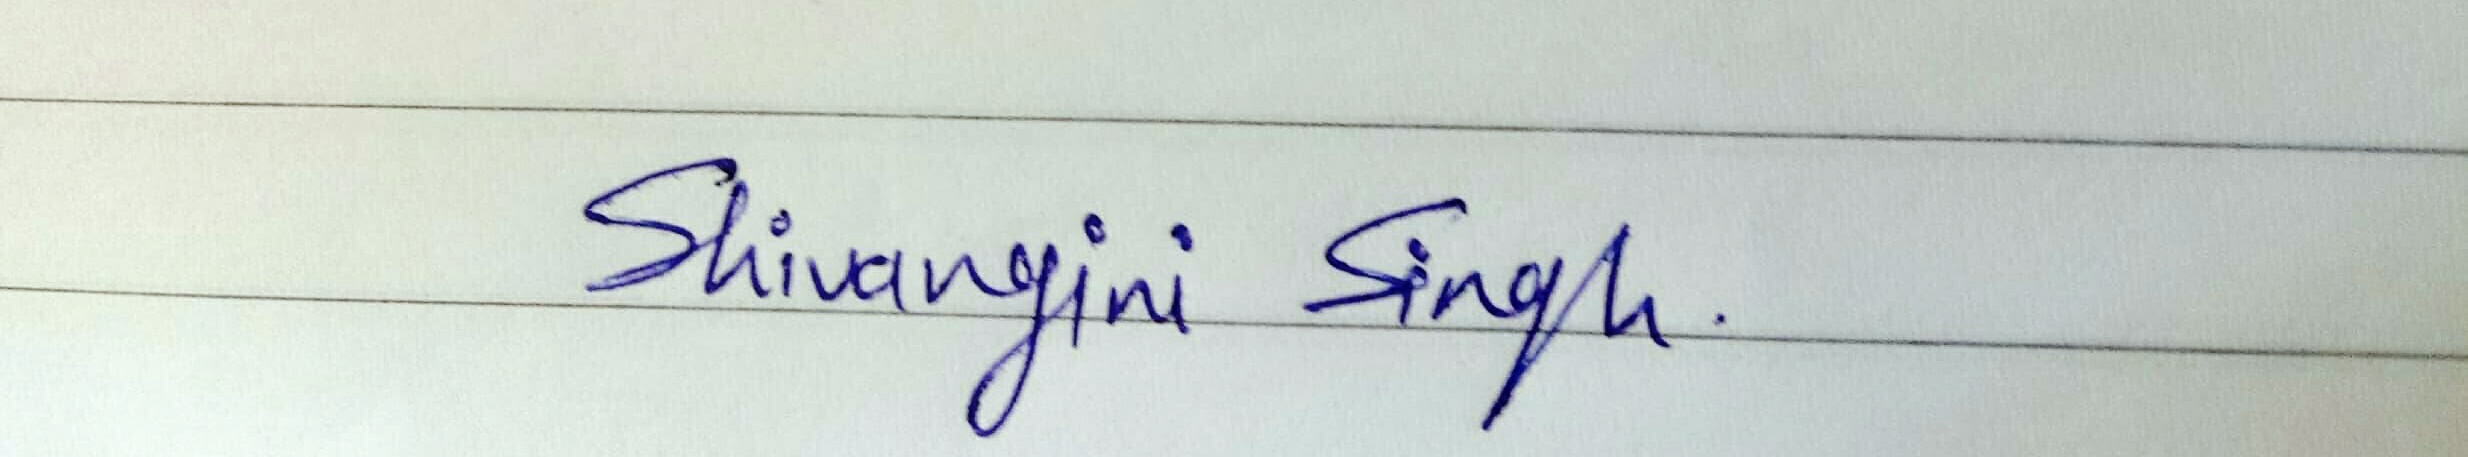 Shivangini Singh.